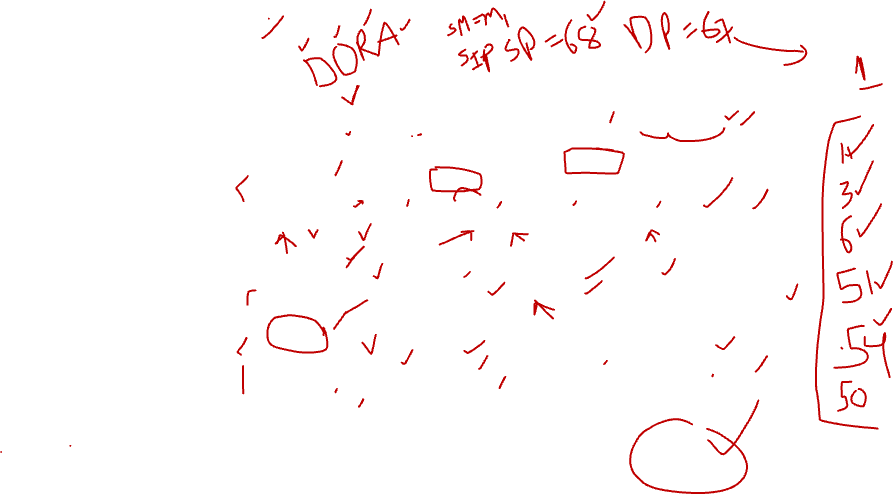 DORA
SM=M,
SIP SP=68 DP=67
1
1
3
6
51
54
50